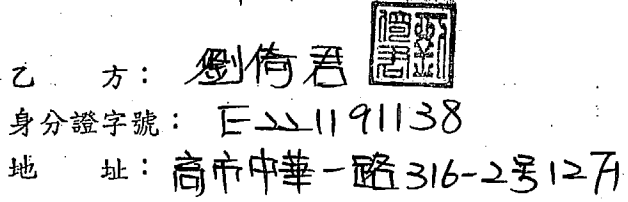 乙 方：劉倚君
身分證字號：E221191138
地 址：高市中華一路316-2号12F1